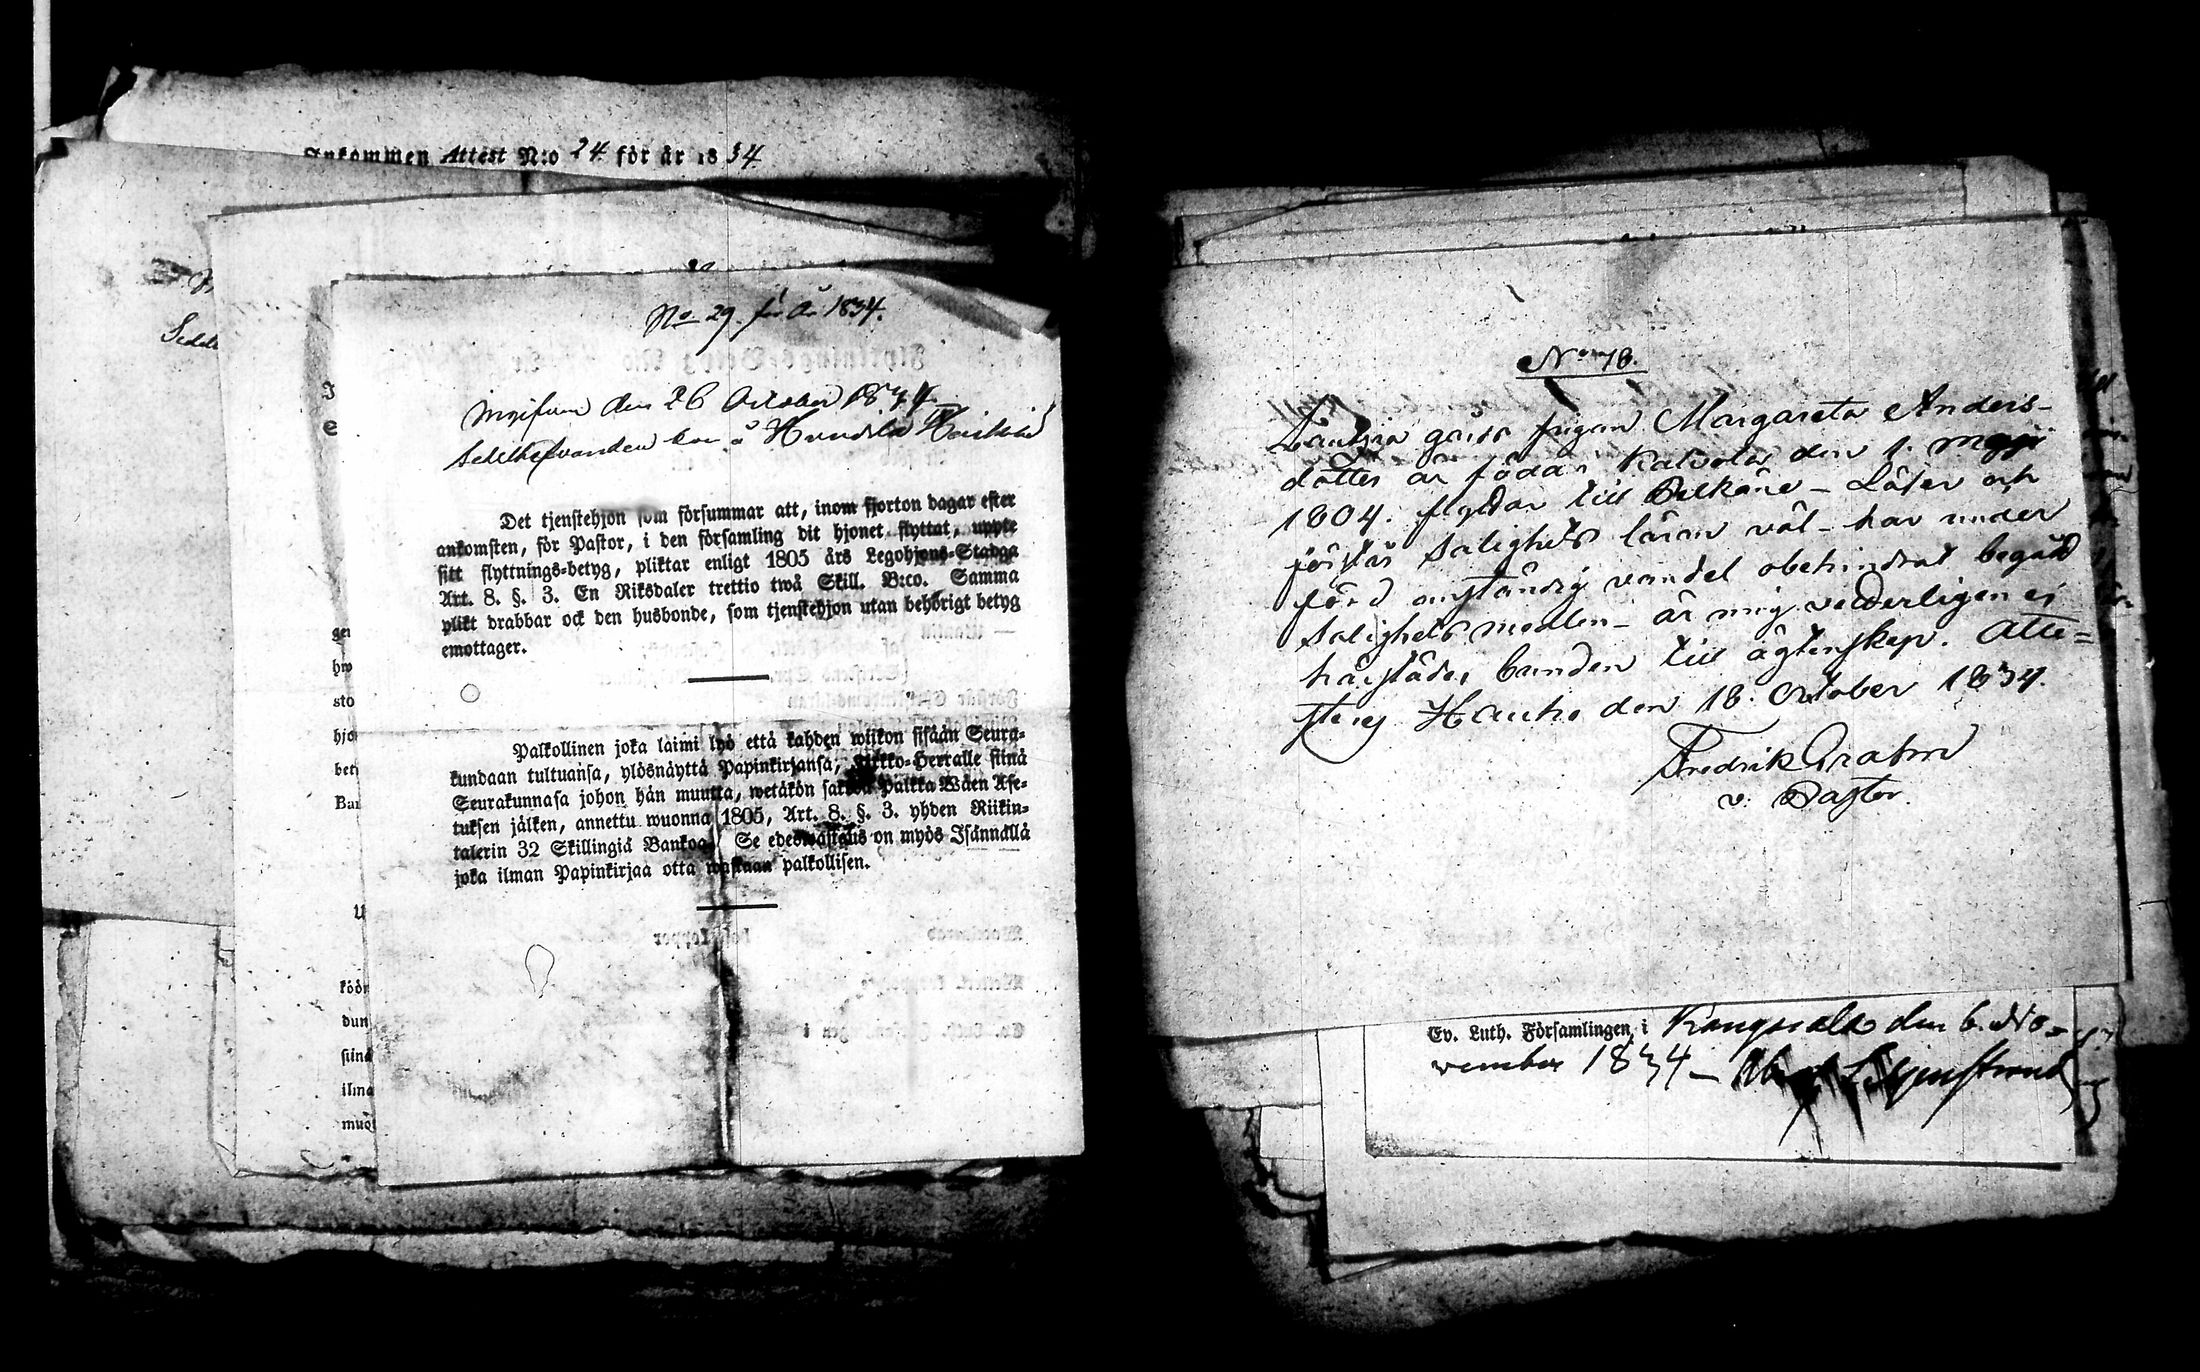 Inkommen Attest N:o 24. för år 1834
No. 29. för År 1834.
den 26 October 1834.
Det tjenstehjon som försummar att, inom fjorton dagar efter
ankomsten, för Pastor, i den församling dit hjonet flyttat, uppte
sitt flyttnings-betyg, pliktar enligt 1805 års Legohjons-Stadga
Art. 8. §. 3. En Riksdaler trettio twå Skill. B:co. Samma
plikt drabbar ock den husbonde, som tjenstehjon utan behörigt betyg
emottager.
Palkollinen joka laimi lyö että kahden wiikon sisään Seura-
kundaan tultuansa, ylösnäyttä Papinkirjansa, Kirkko-Herralle siinä
Seurakunnasa johon hän muutta, wetäkön sakkoa Palkka Wäen Ase-
tuksen jälken, annettu wuonna 1805, Art. 8. §. 3. yhden Riikin-
talerin 32 Skillingiä Bankoa. Se edeswastaus on myös Isännällä
joka ilman Papinkirjaa otta wastaan palkollisen.
No 78.
pigan Margareta Anders-
dotter är född i Kalvola den 1. Maji
1804. flyttar till Pelkäne - Läser och
förstår salighets läran väl - har under
förd anständig vandel obehindrat begått
salighets medlen - är mig vederligen ej
härstädes bunden till ägtenskap. Atte-
steras Hauho den 18. October 1834.
Fredrik Grahn
v. Pastor.
Ev. Luth. Församlingen i Kangasala den 6. No-
vember 1834 -